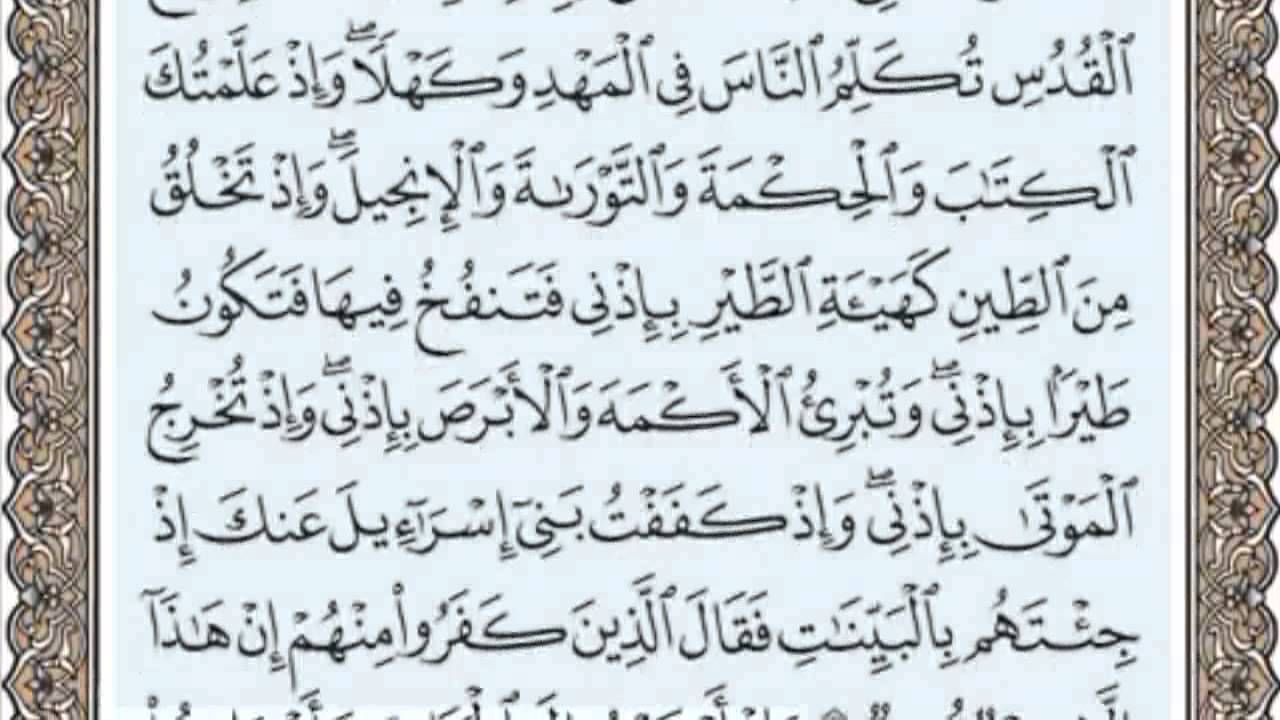 ٱلْقُدُسِ تُكَلِّمُ ٱلنَّاسَ فِى ٱلْمَهْدِ وَكَهْلًاۖ وَإِذْ عَلَّمْتُكَ
ٱلْكِتَٰبَ وَٱلْحِكْمَةَ وَٱلتَّوْرَىٰةَ وَٱلْإِنجِيلَۖ وَإِذْ تَخْلُقُ
مِنَ ٱلطِّينِ كَهَيْـَٔةِ ٱلطَّيْرِ بِإِذْنِى فَتَنفُخُ فِيهَا فَتَكُونُ
طَيْرًۢا بِإِذْنِىۖ وَتُبْرِئُ ٱلْأَكْمَهَ وَٱلْأَبْرَصَ بِإِذْنِىۖ وَإِذْ تُخْرِجُ
ٱلْمَوْتَىٰ بِإِذْنِىۖ وَإِذْ كَفَفْتُ بَنِىٓ إِسْرَٰٓءِيلَ عَنكَ إِذْ
جِئْتَهُم بِٱلْبَيِّنَٰتِ فَقَالَ ٱلَّذِينَ كَفَرُوا۟ مِنْهُمْ إِنْ هَٰذَآ